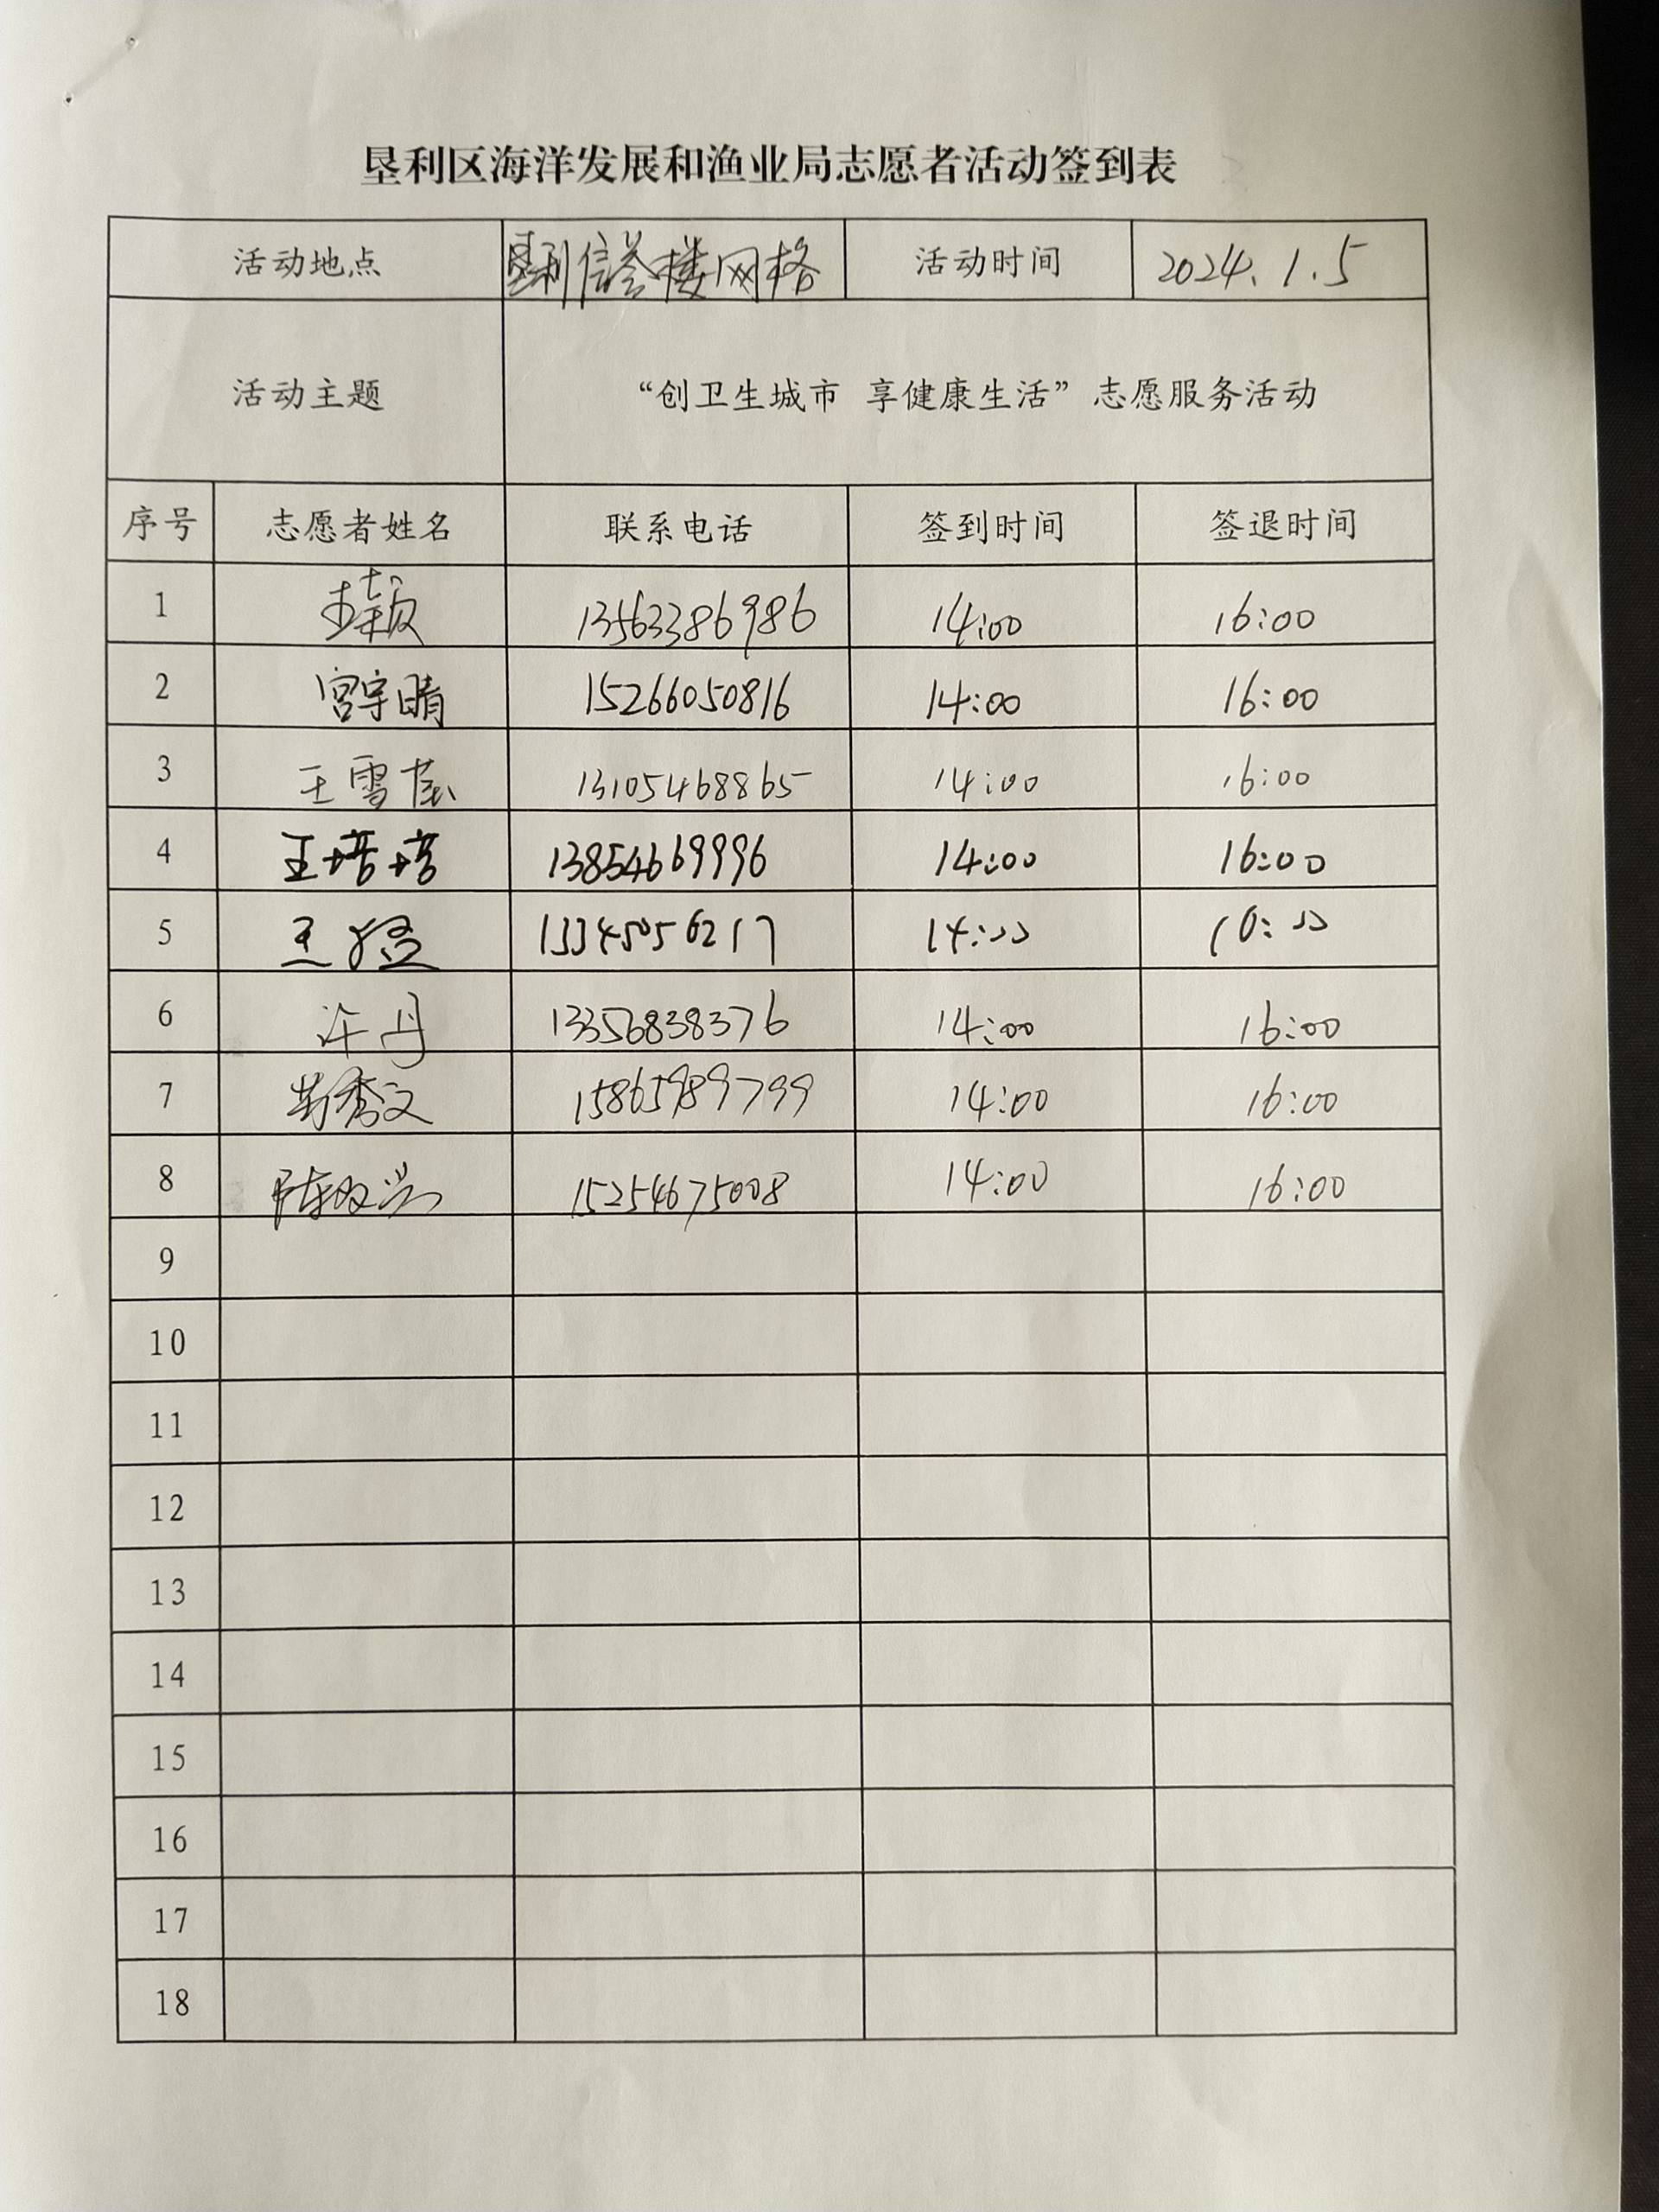 垦利区海洋发展和渔业局志愿者活动签到表
活动地点 垦利信誉楼网格 活动时间 2024.1.5
活动主题 “创卫生城市 享健康生活”志愿服务活动
序号 志愿者姓名 联系电话 签到时间 签退时间
1 13563386986 14:00 16:00
2 宫宇晴 15266050816 14:00 16:00
3 王雪 13105468865 14:00 16:00
4 王培培 13854669996 14:00 16:00
5 王 13345056217 14:00 16:00
6 许丹 13356838376 14:00 16:00
7 秀文 15865989799 14:00 16:00
8 陈双兴 15254675008 14:00 16:00
9
10
11
12
13
14
15
16
17
18